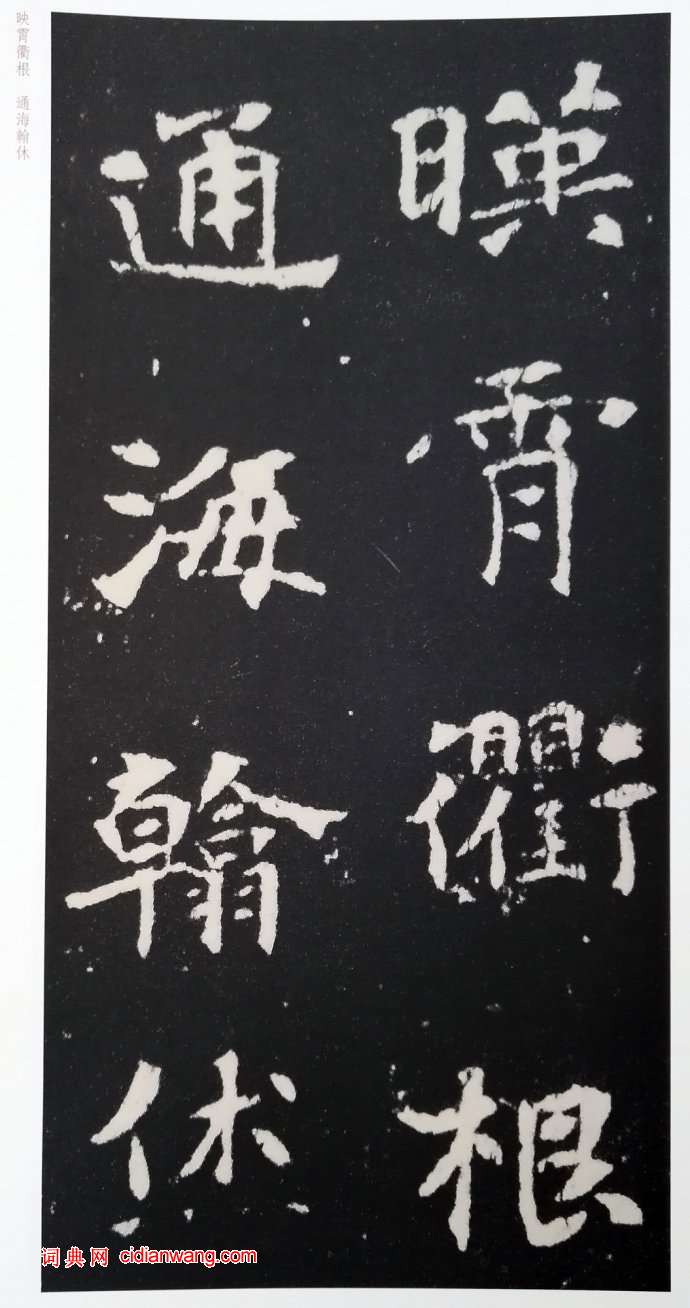 暎霄衢根
通海翰休
映霄衢根 通海翰休
词典网 cidianwang.com